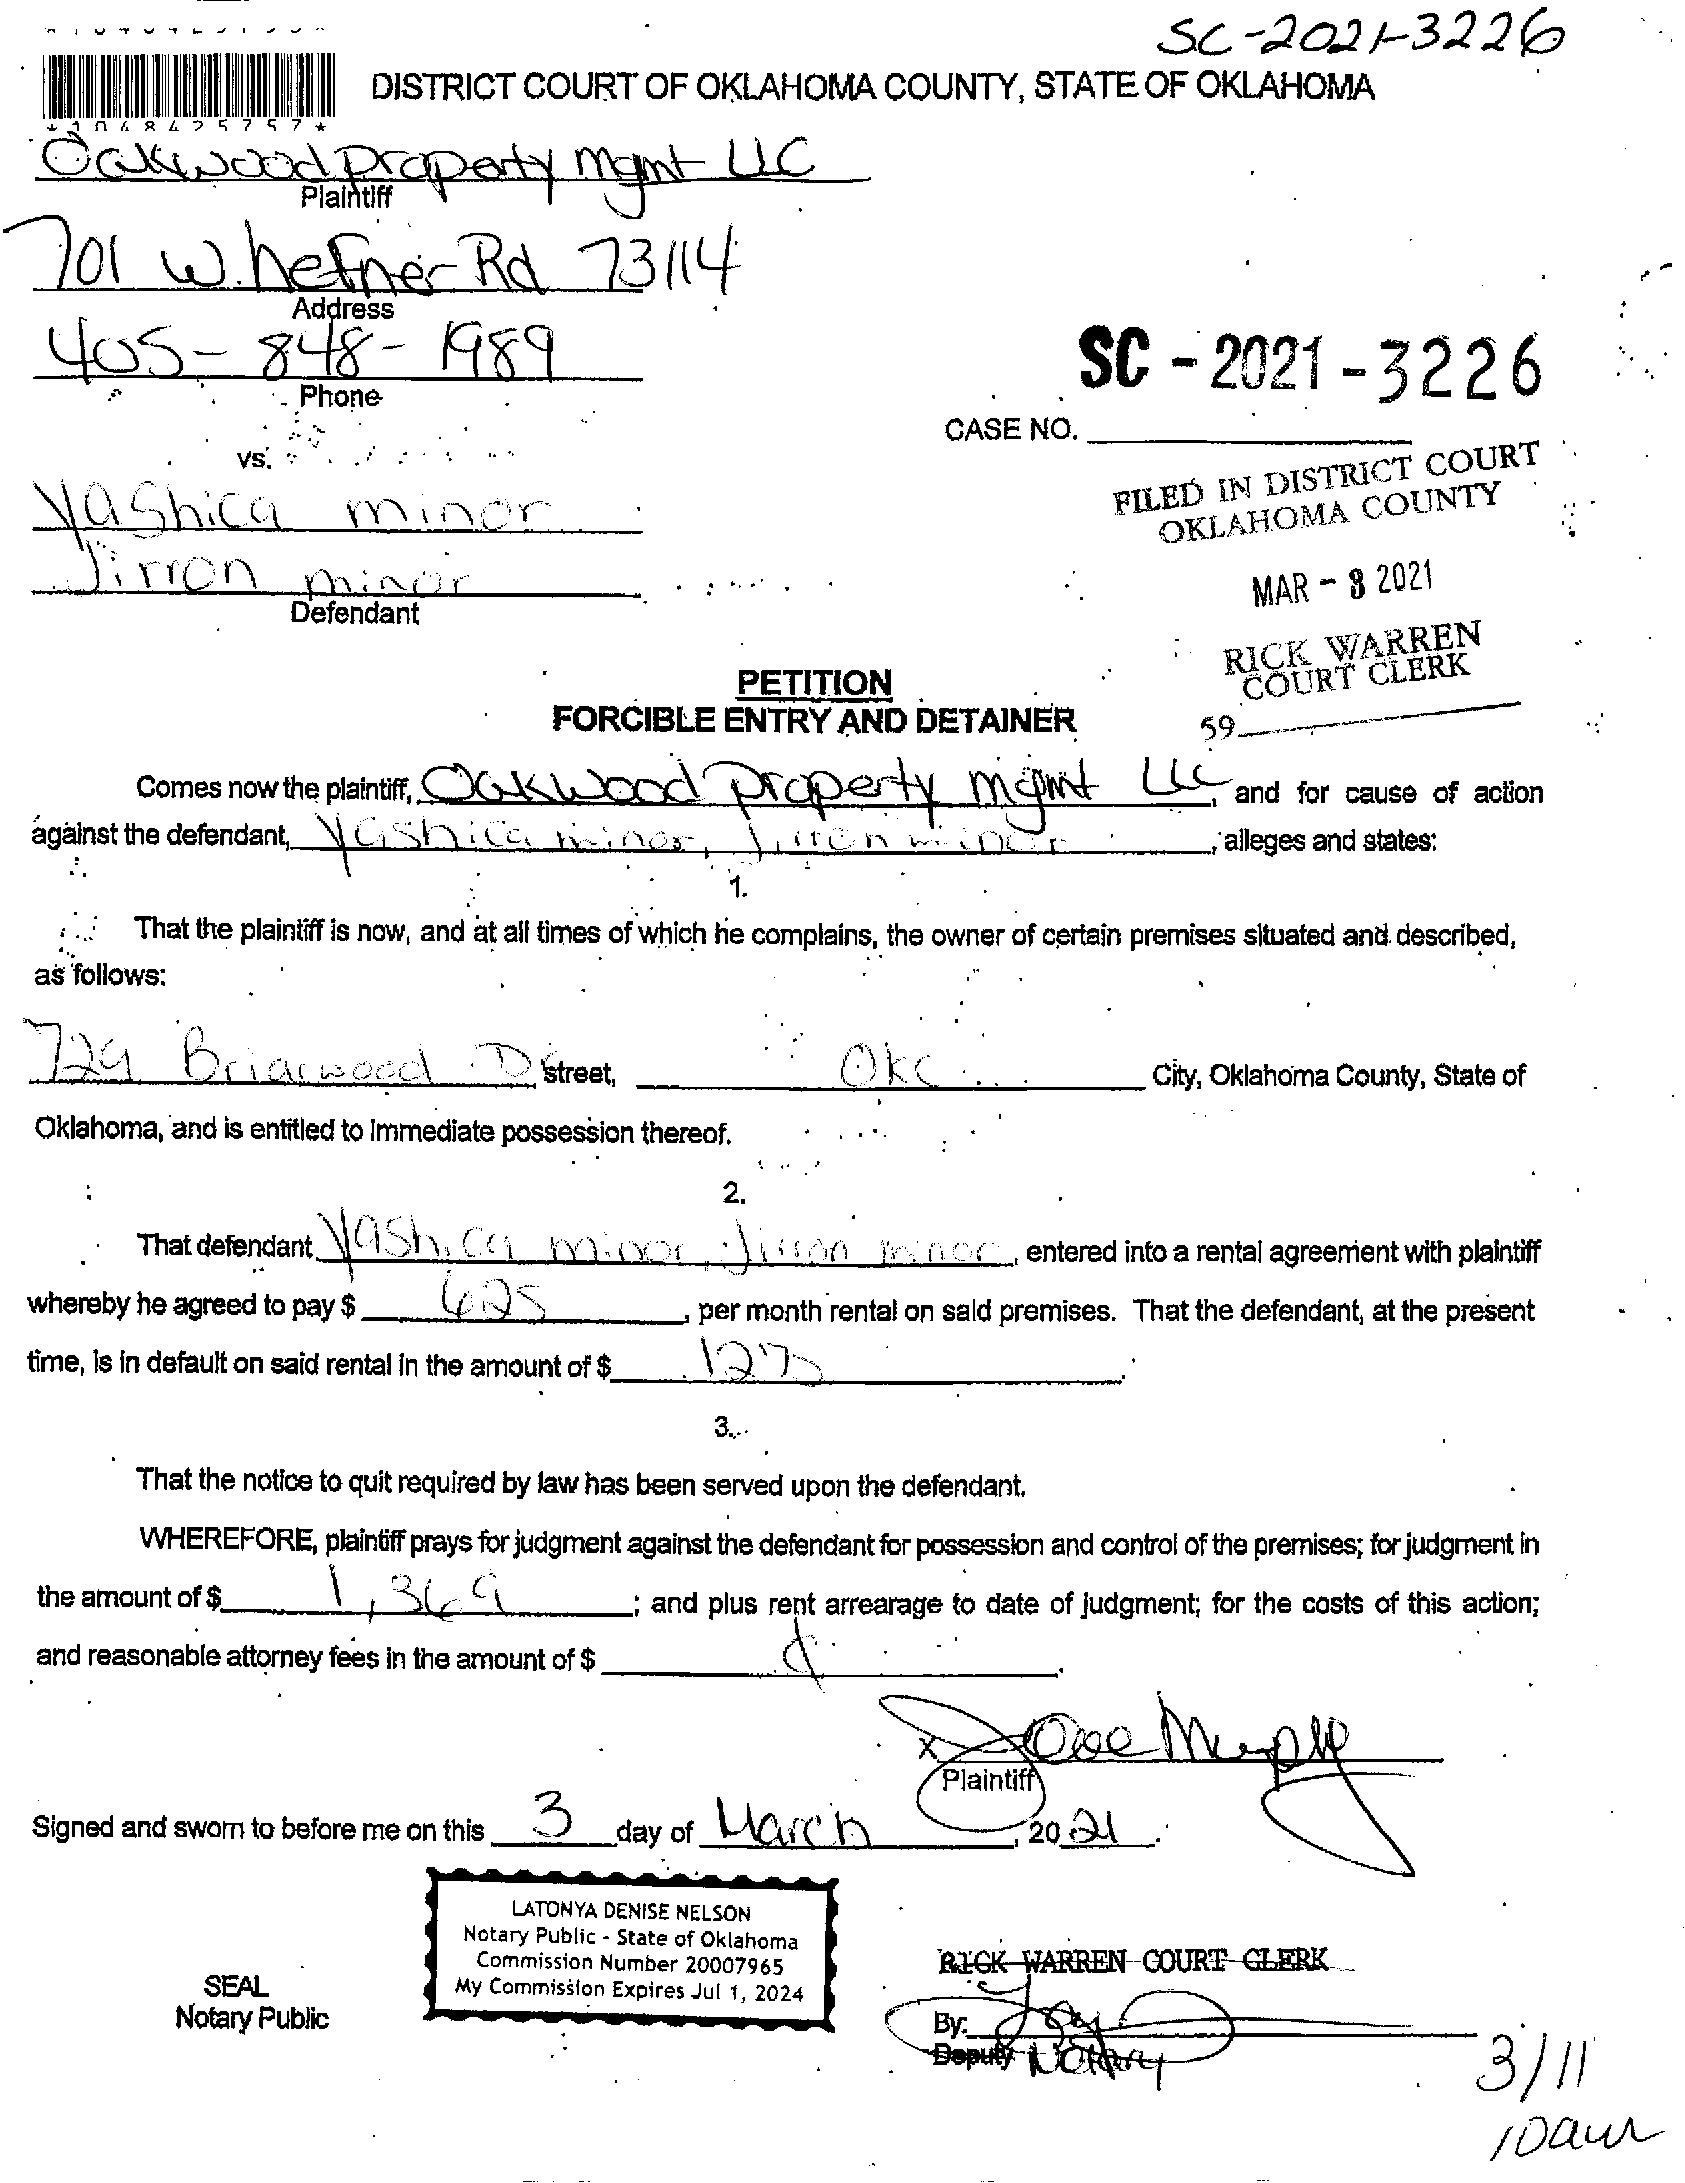 SC-2021-3226
DISTRICT COURT OF OKLAHOMA COUNTY, STATE OF OKLAHOMA
*1048425757*
Oakwood property mgmt LLC
Plaintiff
701 W. hefner Rd 73114
Address
405-848-1989
Phone
SC - 2021 - 3226
CASE NO.
vs.
FILED IN DISTRICT COURT
OKLAHOMA COUNTY
Yashica minor
Jirron minor
Defendant
MAR - 8 2021
RICK WARREN
COURT CLERK
59
PETITION
FORCIBLE ENTRY AND DETAINER
Comes now the plaintiff, Oakwood property mgmt LLC, and for cause of action
against the defendant, Yashica minor, Jirron minor, alleges and states:
1.
That the plaintiff is now, and at all times of which he complains, the owner of certain premises situated and described,
as follows:
729 Briarwood D street, OKC City, Oklahoma County, State of
Oklahoma, and is entitled to immediate possession thereof.
2.
That defendant Yashica minor, Jirron minor, entered into a rental agreement with plaintiff
whereby he agreed to pay $ 625, per month rental on said premises. That the defendant, at the present
time, is in default on said rental in the amount of $ 1275.
3.
That the notice to quit required by law has been served upon the defendant.
WHEREFORE, plaintiff prays for judgment against the defendant for possession and control of the premises; for judgment in
the amount of $ 1,369; and plus rent arrearage to date of judgment; for the costs of this action;
and reasonable attorney fees in the amount of $
x
Plaintiff
Signed and sworn to before me on this 3 day of March, 2021.
LATONYA DENISE NELSON
Notary Public - State of Oklahoma
Commission Number 20007965
My Commission Expires Jul 1, 2024
SEAL
Notary Public
RICK WARREN COURT CLERK
By:
Deputy Notary
3/11
10am